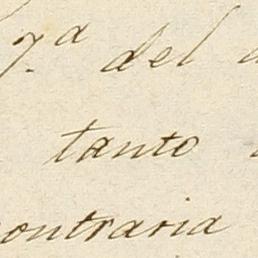 7.ª del
tanto
contraria